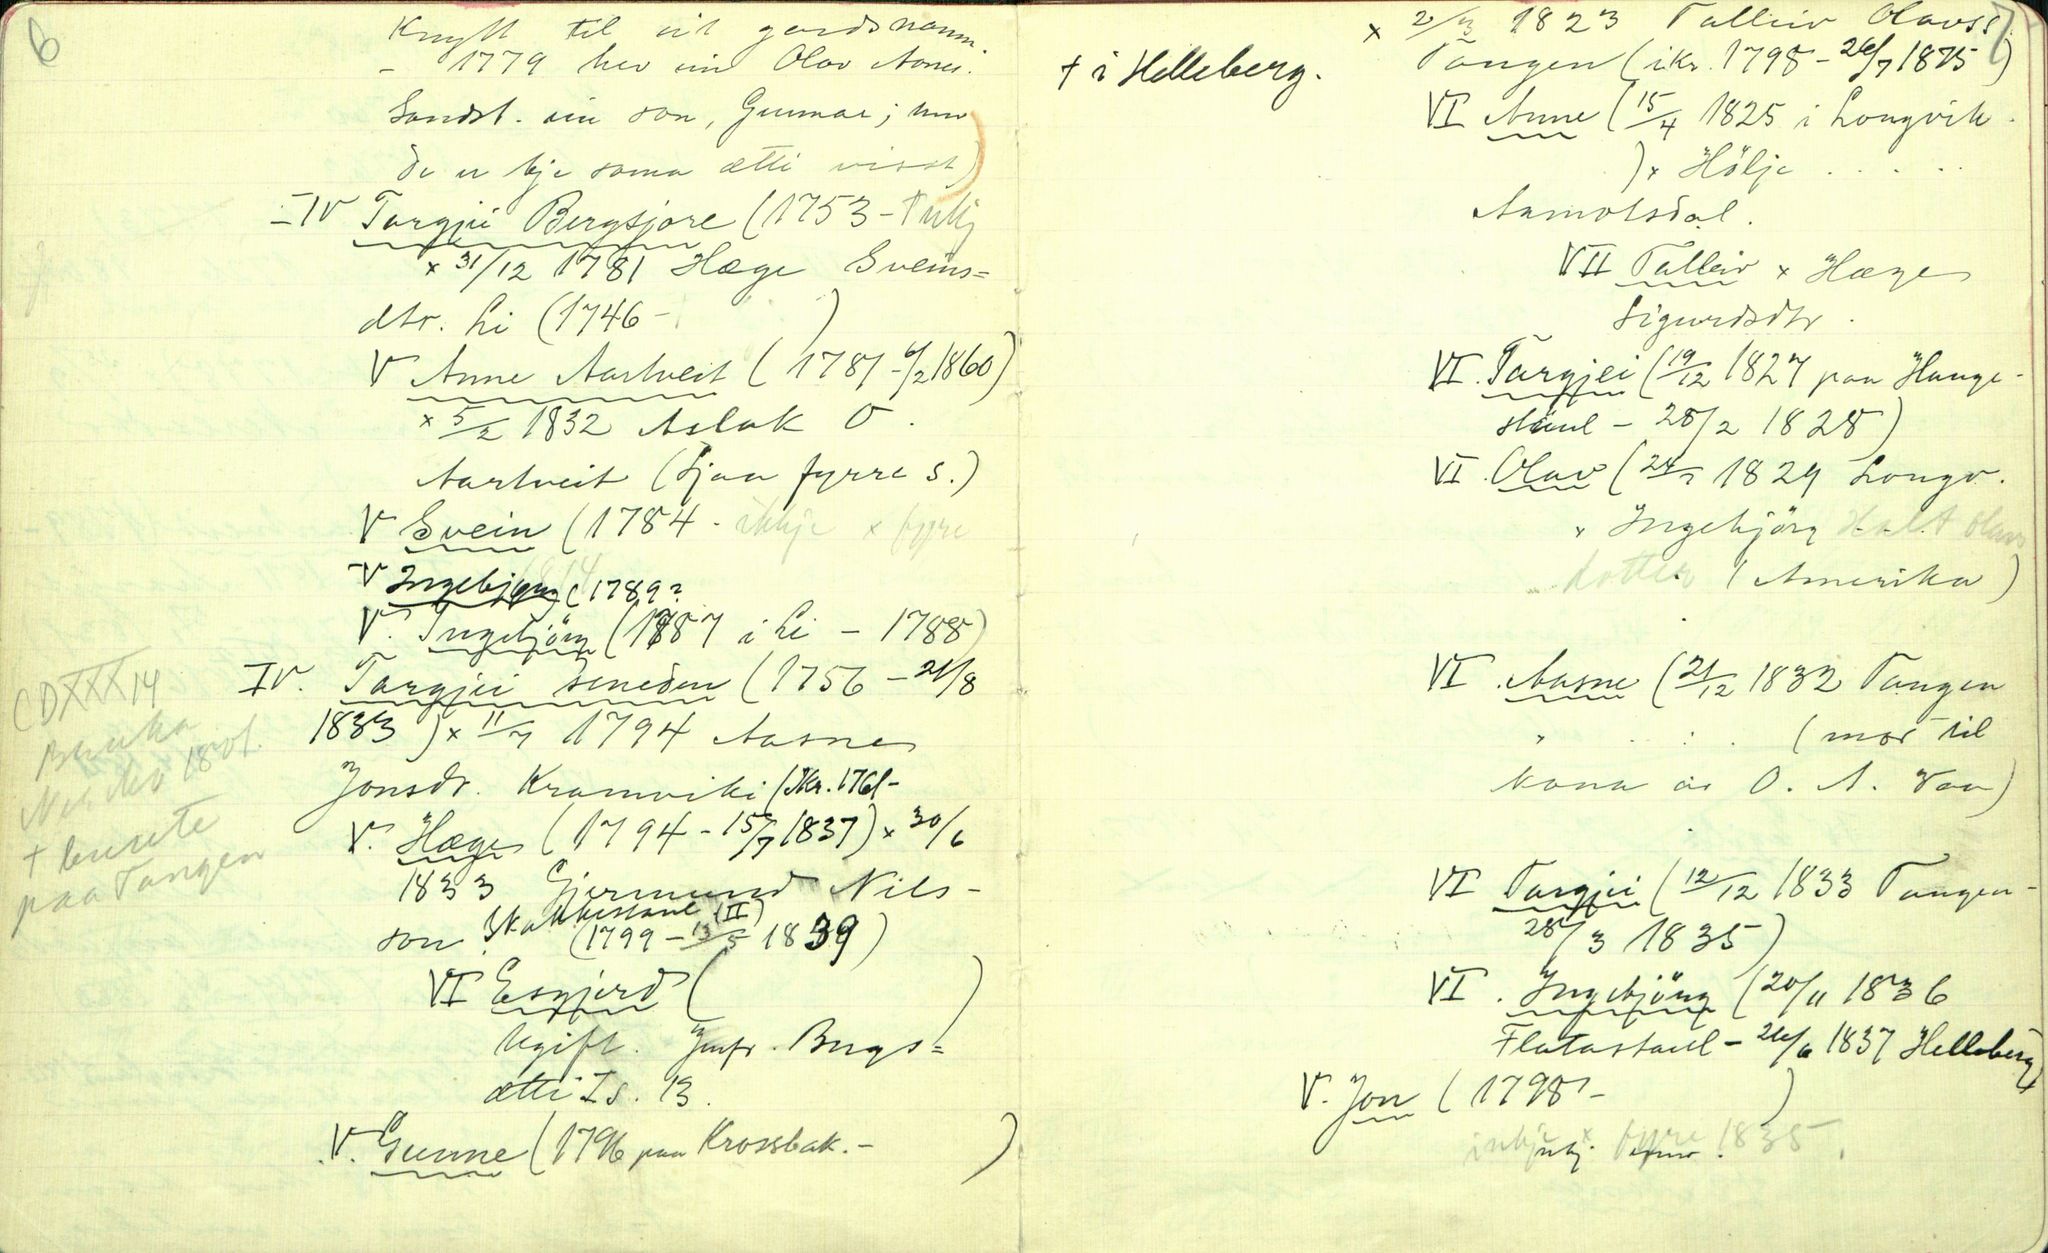 6
Knytt til eit gardsnamn.
- 1779 hev ein Olav Aanes.
Sandst. ein son, Gunnar; men
de er kje sama ætti visst)
IV Targjei Bergsjore (1753 -
x 31/12 1781 Hæge Sveins=
dtr. Li (1746 - )
V Anne Aartveit (1781 - 6/2 1860)
x 5/2 1832 Aslak O.
Aartveit (Sjaa fyrre s.)
V Svein (1784 - inkje x fyre
V Ingebjørg (1789?
V. Ingebjörg (1787 i Li - 1788)
IV. Targjei Seneden (1756 - 21/8
1833) x 11/7 1794 Aasne
Jonsdr. Kramviki (ikr. 1761 -
V. Hæge (1794 - 15/7 1837) x 30/6
1833 Gjermund Nils-
son (II)
(1799 - 13/5 1839)
VI Esgjerd ( )
Ugift. Jmfr. Bugs=
ætti I s. 13.
V. Gunne (1796 paa Krossbak. - )
CDXXX14
paa Tangen
7
x 2/3 1823 Talleiv Olavss.
Tangen (ikr. 1798 - 26/7 1875)
† i Helleberg.
VI Anne (15/4 1825 i Longvik.
) x Hölje . . . . .
Aamotsdal.
VII Talleiv x Hæge
Sigurdsdtr.
VI. Targjei (19/12 1827 paa Hauge-
staul - 28/2 1828)
VI. Olav (24/7 1829 Longv.
x Ingebjörg Olavs
dotter (Amerika)
VI. Aasne (21/12 1832 Tangen
(mor til
kona aa O. A. Vaa)
VI Targjei (12/12 1833 Tangen-
28/3 1835)
VI. Ingebjörg (20/11 1836
Flatastaul - 26/6 1837 Helleberg)
V. Jon (1798 - )
inkje x fyre 1835.